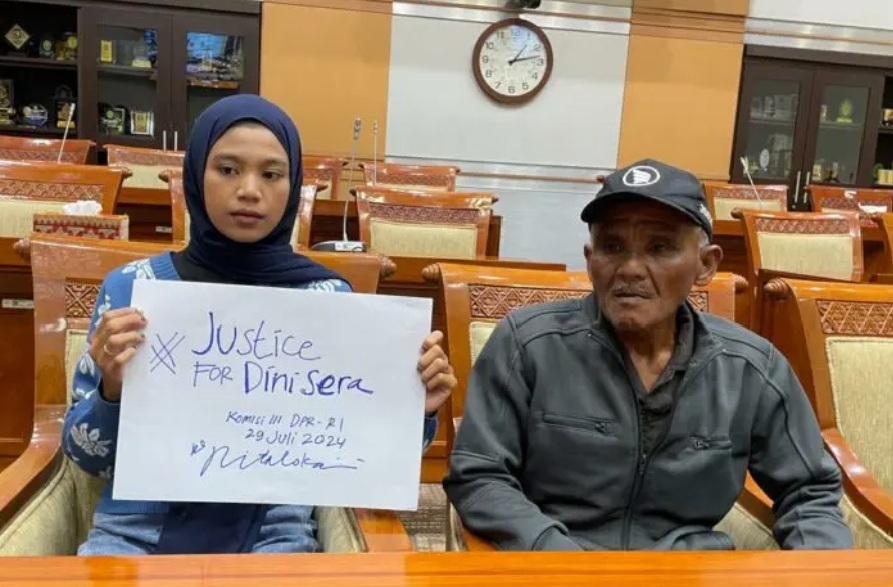 # Justice
FOR Dini Sera
Komisi III DPR-RI
29 Juli 2024